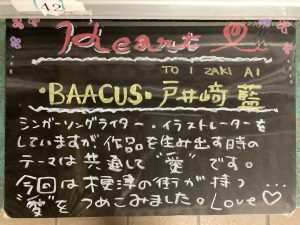 42
Ideart
TOIZAKI AI
・BAACUS・戸井﨑 藍
シンガーソングライター・イラストレーターを
していますが作品を住み出す時の
テーマは共通して"愛"です。
今回は梗淳の街が持つ
"愛"をつめこみました。Love♡